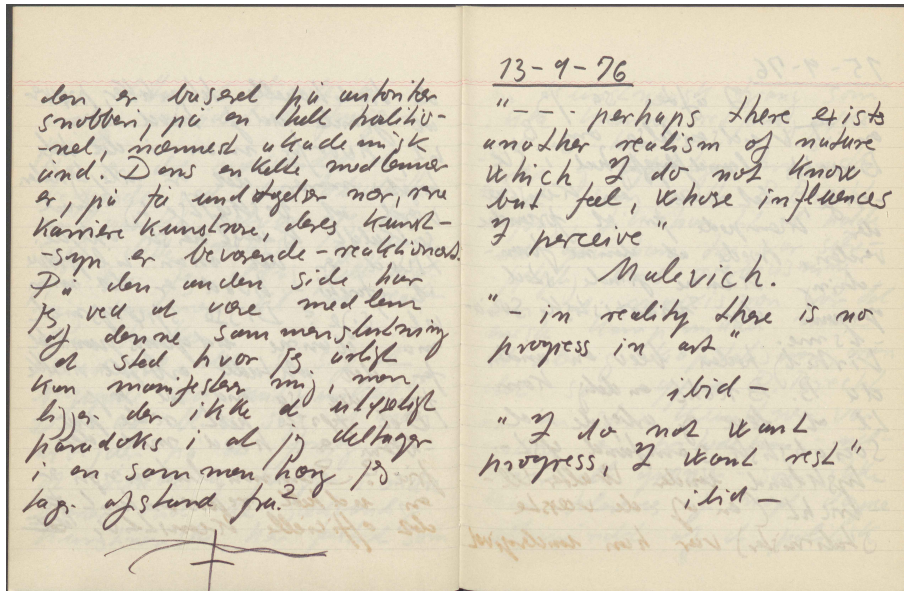 den er baseret på autoritær
snobberi, på en helt traditio-
-nel, nærmest akademisk
ånd. Dens enkelte medlemmer
er, på få undtagelser nær, rene
Karriere Kunstnere, deres Kunst-
-syn er bevarende - reaktionært.
På den anden side har
jeg ved at være medlem
af denne sammenslutning
et sted hvor jeg årligt
kan manifestere mig, men
ligger der ikke et utyseligt
paradoks i at jeg deltager
i en sammenhæng jeg
tager afstand fra?
13-9-76
"--- perhaps there exists
another realism of nature
which I do not know
but feel, whose influences
I perceive"
Malevich.
"- in reality there is no
progress in art"
ibid -
"I do not want
progress, I want rest"
ibid -